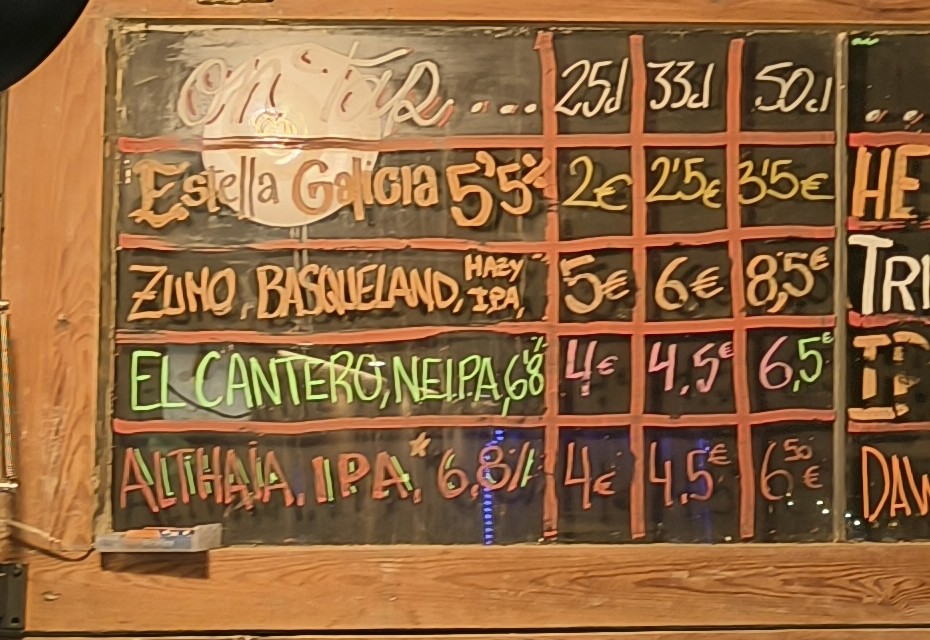 on Tap, .... 25cl 33cl 50cl
Estella Galicia 5'5% 2€ 2'5€ 3'5€
ZUMO, BASQUELAND, HAZY IPA, 5€ 6€ 8,5€
EL CANTERO, NEIPA, 6'8% 4€ 4,5€ 6,5€
ALTHAIA. IPA.* 6,8% 4€ 4,5€ 6 50 €
HE
TRI
IP
DAW